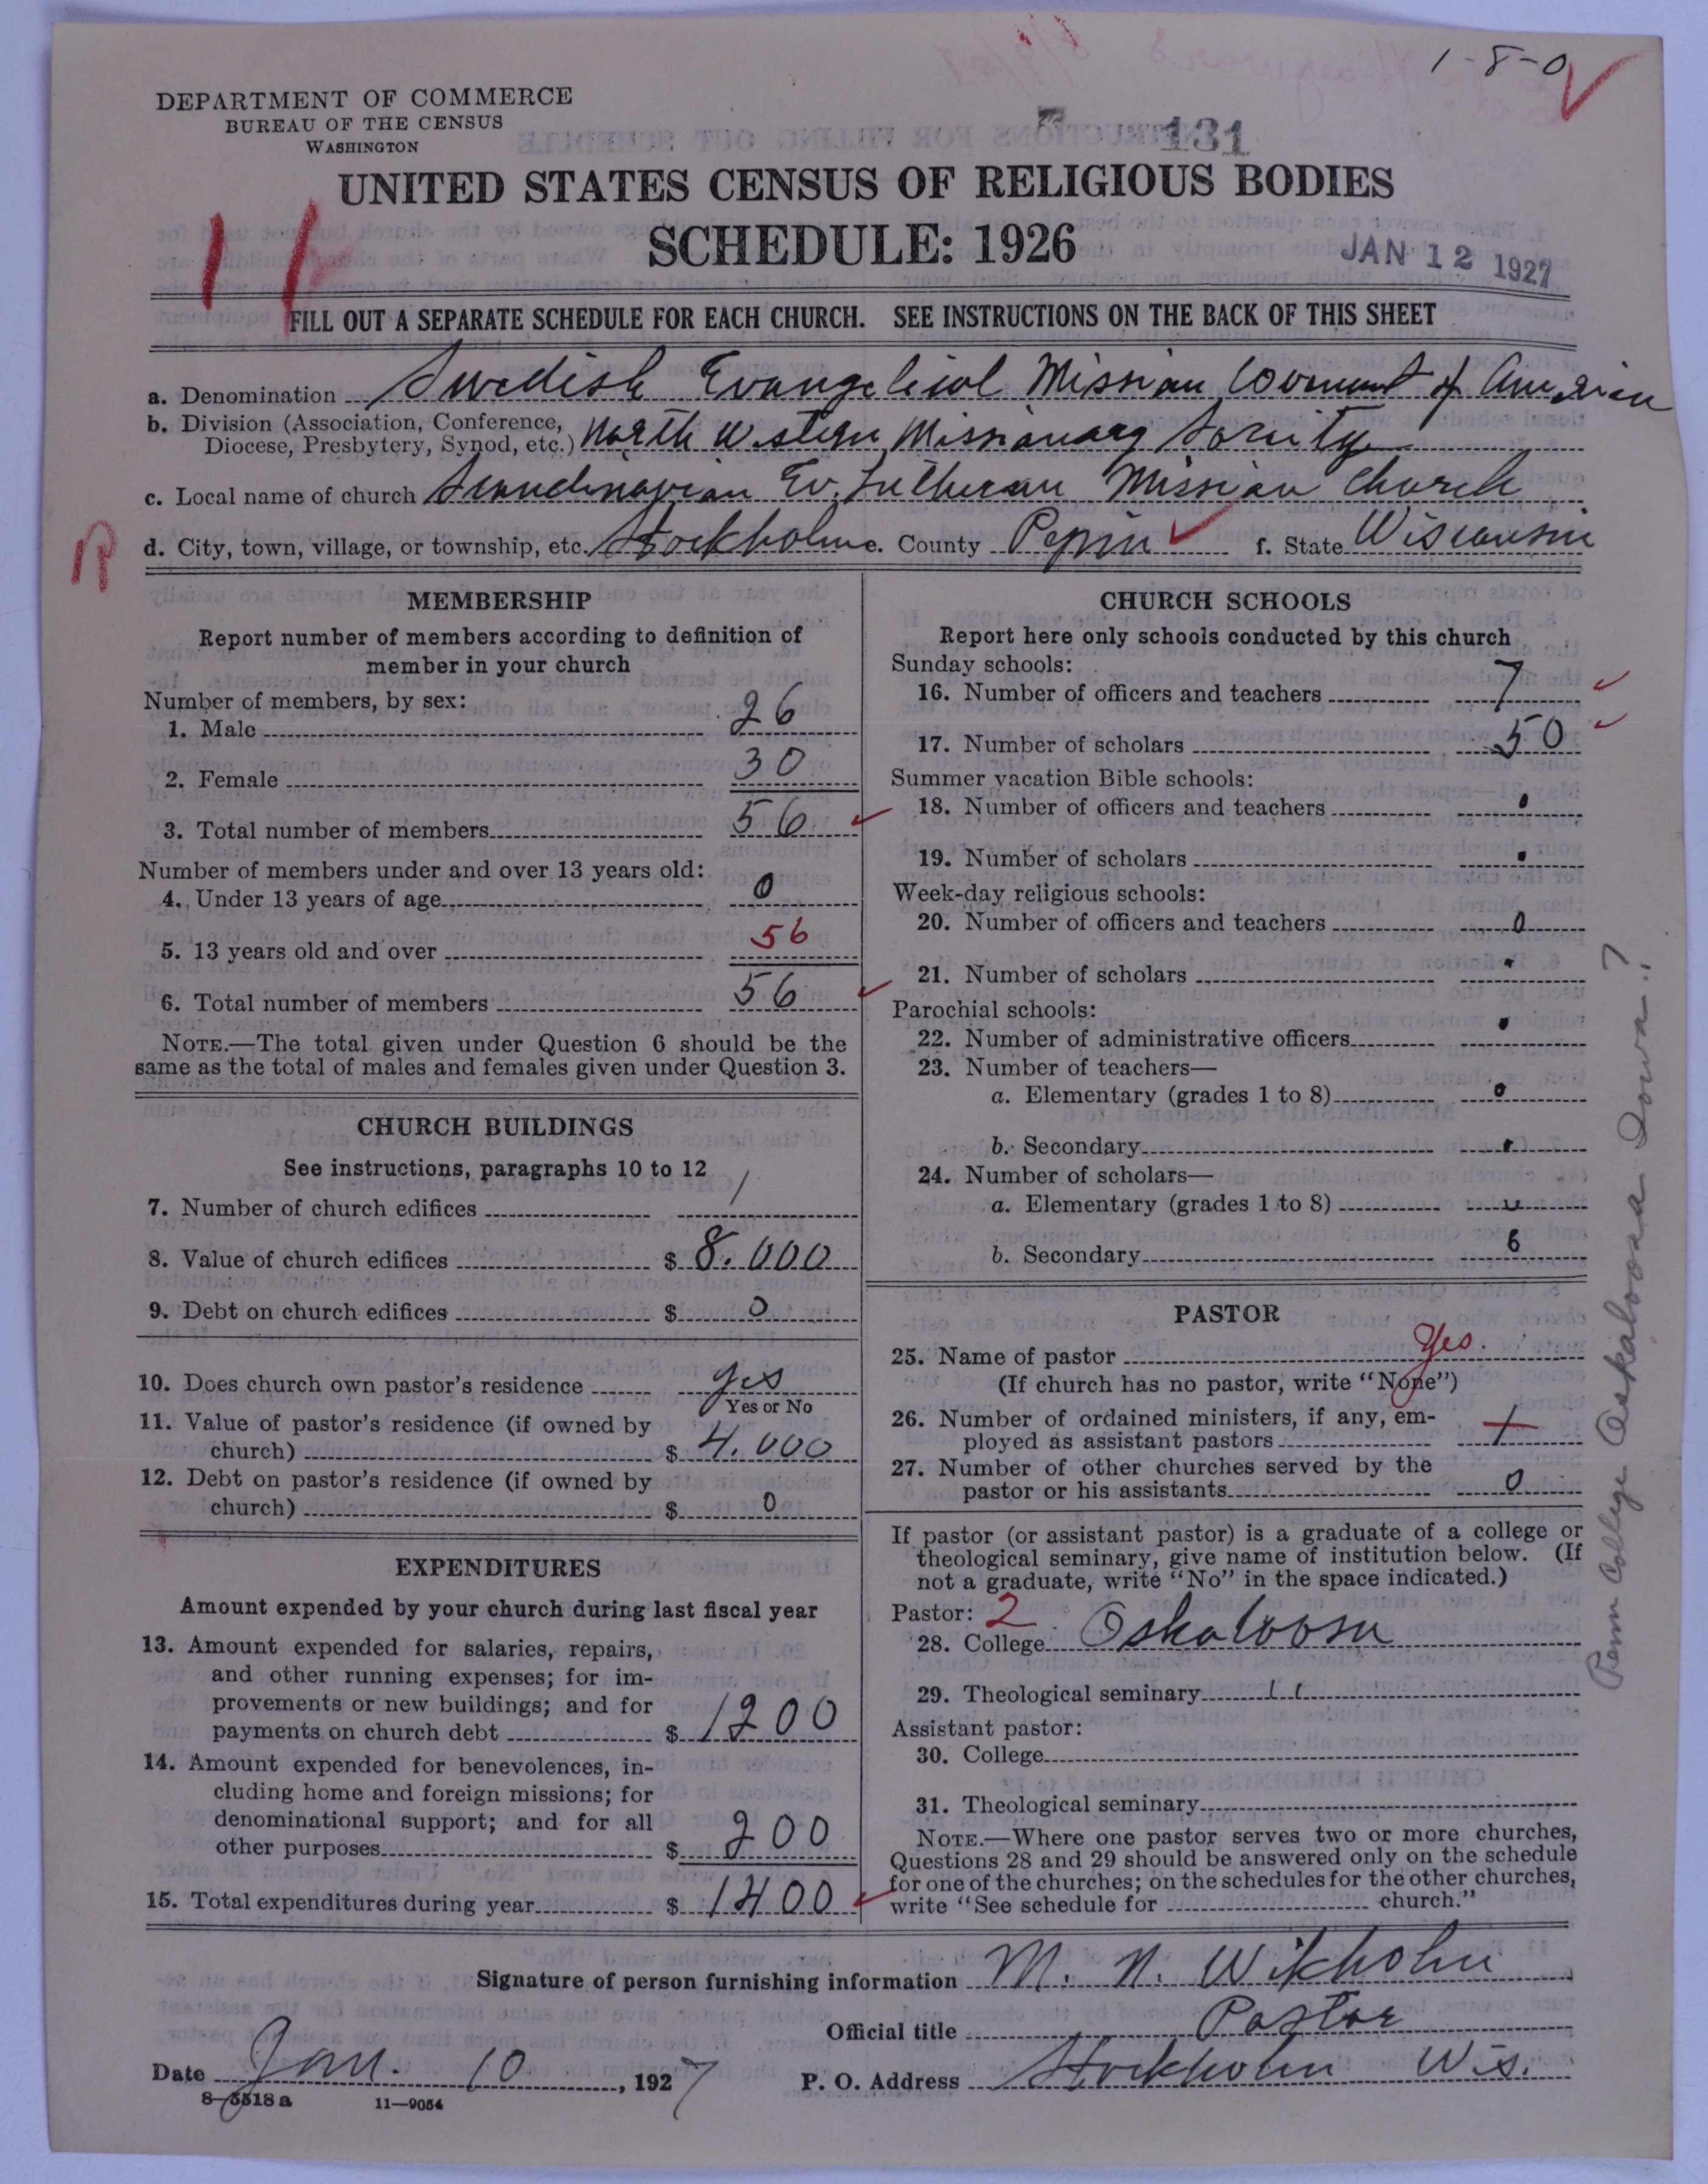 1-8-0
DEPARTMENT OF COMMERCE
BUREAU OF THE CENSUS
WASHINGTON
131
UNITED STATES CENSUS OF RELIGIOUS BODIES
SCHEDULE: 1926
JAN 12 1927
11
FILL OUT A SEPARATE SCHEDULE FOR EACH CHURCH. SEE INSTRUCTIONS ON THE BACK OF THIS SHEET
a. Denomination Swedish Evangelical Mission Covenant of America
b. Division (Association, Conference,
Diocese, Presbytery, Synod, etc.) North Western Missionary Society
c. Local name of church Scandinavian Ev. Lutheran Mission Church
R
d. City, town, village, or township, etc. Stockholm e. County Pepin f. State Wisconsin
MEMBERSHIP
Report number of members according to definition of
member in your church
Number of members, by sex:
1. Male 26
2. Female 30
3. Total number of members 56
Number of members under and over 13 years old:
4. Under 13 years of age 0
5. 13 years old and over 56
6. Total number of members 56
NOTE.—The total given under Question 6 should be the
same as the total of males and females given under Question 3.
CHURCH BUILDINGS
See instructions, paragraphs 10 to 12
7. Number of church edifices 1
8. Value of church edifices $ 8.000
9. Debt on church edifices $ 0
10. Does church own pastor's residence yes
Yes or No
11. Value of pastor's residence (if owned by
church) $ 4.000
12. Debt on pastor's residence (if owned by
church) $ 0
EXPENDITURES
Amount expended by your church during last fiscal year
13. Amount expended for salaries, repairs,
and other running expenses; for im-
provements or new buildings; and for
payments on church debt $ 1200
14. Amount expended for benevolences, in-
cluding home and foreign missions; for
denominational support; and for all
other purposes $ 200
15. Total expenditures during year $ 1400
CHURCH SCHOOLS
Report here only schools conducted by this church
Sunday schools:
16. Number of officers and teachers 7
17. Number of scholars 50
Summer vacation Bible schools:
18. Number of officers and teachers
19. Number of scholars
Week-day religious schools:
20. Number of officers and teachers 0
21. Number of scholars
Parochial schools:
22. Number of administrative officers
23. Number of teachers—
a. Elementary (grades 1 to 8) 0
b. Secondary
24. Number of scholars—
a. Elementary (grades 1 to 8)
b. Secondary
PASTOR
25. Name of pastor Yes.
(If church has no pastor, write "None")
26. Number of ordained ministers, if any, em-
ployed as assistant pastors 1
27. Number of other churches served by the
pastor or his assistants 0
If pastor (or assistant pastor) is a graduate of a college or
theological seminary, give name of institution below. (If
not a graduate, write "No" in the space indicated.)
Pastor: 2
28. College Oskaloosa
29. Theological seminary 11
Assistant pastor:
30. College
31. Theological seminary
NOTE.—Where one pastor serves two or more churches,
Questions 28 and 29 should be answered only on the schedule
for one of the churches; on the schedules for the other churches,
write "See schedule for church."
Penn College Oskaloosa Iowa?
Signature of person furnishing information M. N. Wikholm
Official title Pastor
Date Jan. 10, 1927 P. O. Address Stockholm Wis.
8-5518 a 11—9054